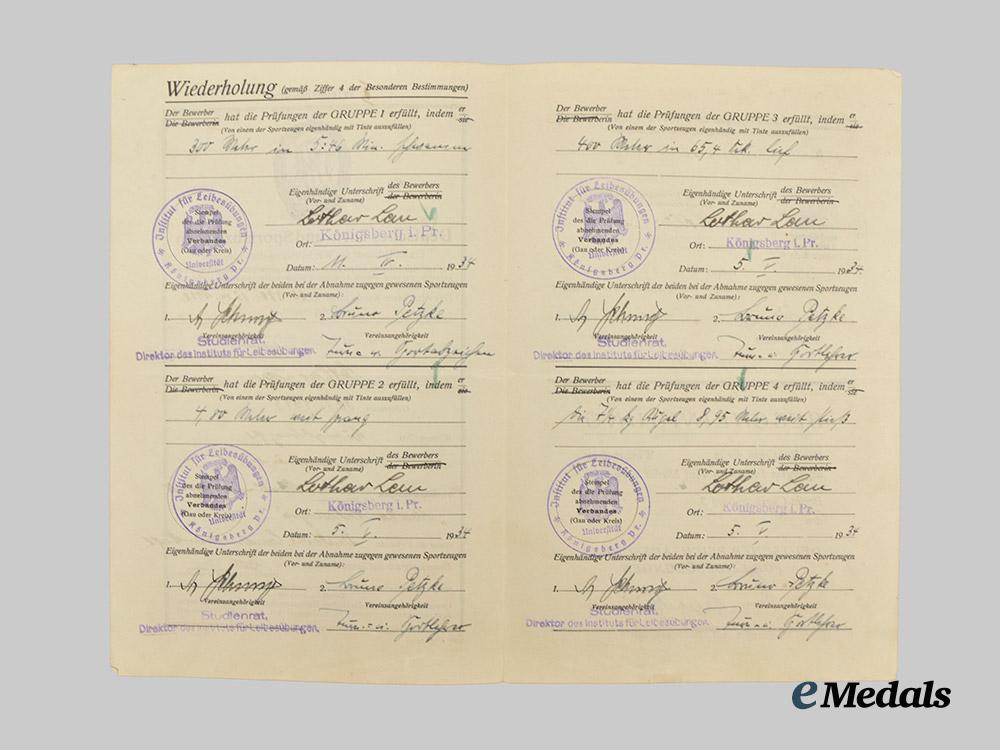 Wiederholung (gemäß Ziffer 4 der Besonderen Bestimmungen)
Der Bewerber
Die Bewerberin
hat die Prüfungen der GRUPPE 1 erfüllt, indem er
sie
(Von einem der Sportzeugen eigenhändig mit Tinte auszufüllen)
300 Meter in 5:46 Min.
Institut für Leibesübungen
Universität
Königsberg Pr.
Stempel
des die Prüfung
abnehmenden
Verbandes
(Gau oder Kreis)
Eigenhändige Unterschrift des Bewerbers
(Vor- und Zuname) der Bewerberin
Lothar Lau
Ort: Königsberg i. Pr.
Datum: 11. IV. 1934
Eigenhändige Unterschrift der beiden bei der Abnahme zugegen gewesenen Sportzeugen
(Vor- und Zuname):
1. 2. Bruno Petzke
Vereinsangehörigkeit
Studienrat,
Direktor des Instituts für Leibesübungen.
Der Bewerber
Die Bewerberin
hat die Prüfungen der GRUPPE 2 erfüllt, indem er
sie
(Von einem der Sportzeugen eigenhändig mit Tinte auszufüllen)
4,80 Meter weit sprang
Institut für Leibesübungen
Universität
Königsberg Pr.
Stempel
des die Prüfung
abnehmenden
Verbandes
(Gau oder Kreis)
Eigenhändige Unterschrift des Bewerbers
(Vor- und Zuname) der Bewerberin
Lothar Lau
Ort: Königsberg i. Pr.
Datum: 5. V. 1934
Eigenhändige Unterschrift der beiden bei der Abnahme zugegen gewesenen Sportzeugen
(Vor- und Zuname):
1. 2. Bruno Petzke
Vereinsangehörigkeit
Studienrat,
Direktor des Instituts für Leibesübungen.
Turn- u. Sportlehrer
Der Bewerber
Die Bewerberin
hat die Prüfungen der GRUPPE 3 erfüllt, indem er
sie
(Von einem der Sportzeugen eigenhändig mit Tinte auszufüllen)
400 Meter in 65,4 Sek. lief
Institut für Leibesübungen
Universität
Königsberg Pr.
Stempel
des die Prüfung
abnehmenden
Verbandes
(Gau oder Kreis)
Eigenhändige Unterschrift des Bewerbers
(Vor- und Zuname) der Bewerberin
Lothar Lau
Ort: Königsberg i. Pr.
Datum: 5. V. 1934.
Eigenhändige Unterschrift der beiden bei der Abnahme zugegen gewesenen Sportzeugen
(Vor- und Zuname):
1. 2. Bruno Petzke
Vereinsangehörigkeit
Studienrat,
Direktor des Instituts für Leibesübungen.
Turn- u. Sportlehrer
Der Bewerber
Die Bewerberin
hat die Prüfungen der GRUPPE 4 erfüllt, indem er
sie
(Von einem der Sportzeugen eigenhändig mit Tinte auszufüllen)
die 7¼ kg Kugel 8,95 Meter weit stieß
Institut für Leibesübungen
Universität
Königsberg Pr.
Stempel
des die Prüfung
abnehmenden
Verbandes
(Gau oder Kreis)
Eigenhändige Unterschrift des Bewerbers
(Vor- und Zuname) der Bewerberin
Lothar Lau
Ort: Königsberg i. Pr.
Datum: 5. V 1934
Eigenhändige Unterschrift der beiden bei der Abnahme zugegen gewesenen Sportzeugen
(Vor- und Zuname):
1. 2. Bruno Petzke
Vereinsangehörigkeit
Studienrat,
Direktor des Instituts für Leibesübungen.
Turn- u. Sportlehrer
eMedals